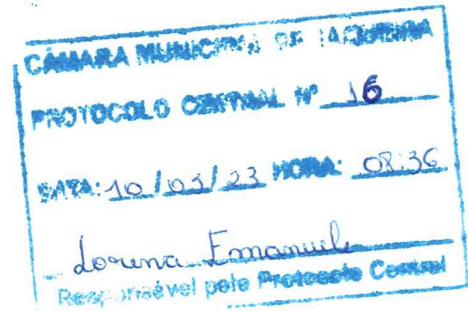 CÂMARA MUNICIPAL DE JAQUEIRA
PROTOCOLO CENTRAL Nº 16
DATA: 10/03/23 HORA: 08:36
Lorena Emanuele
Responsável pelo Protocolo Central